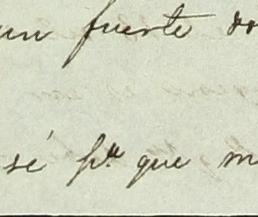 un fuerte do
sé pa que m